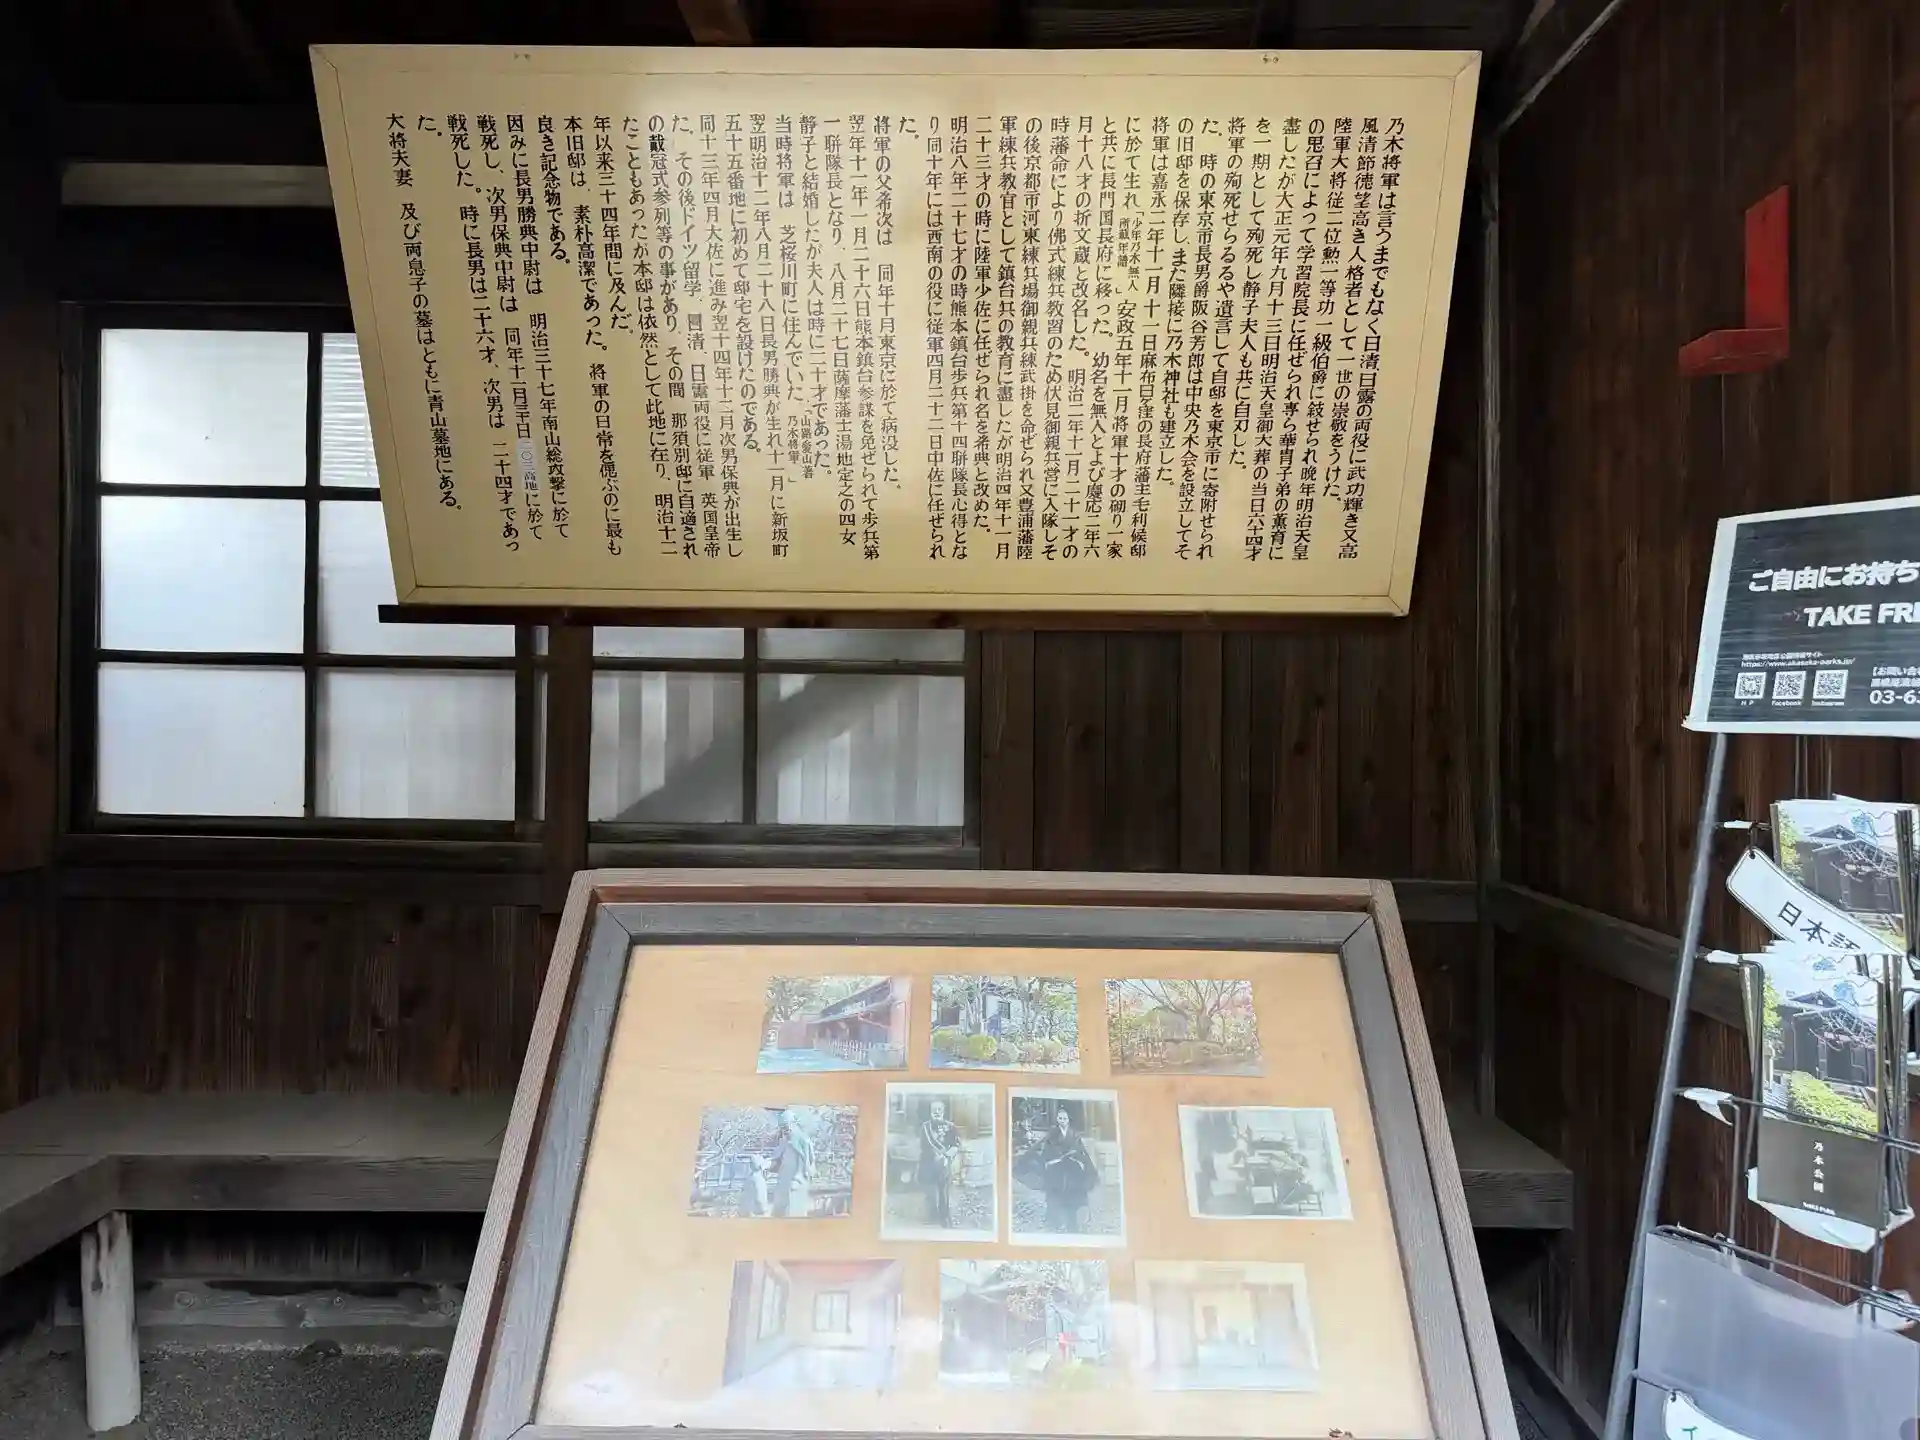 乃木将軍は言うまでもなく日清日露の両役に武功輝き又高
風清節徳望高き人格者として一世の崇敬をうけた。
陸軍大将従二位勲一等功一級伯爵に敍せられ晩年明治天皇
の思召によって学習院長に任ぜられ専ら華冑子弟の薫育に
盡したが大正元年九月十三日明治天皇御大葬の当日六十四才
を一期として殉死し静子夫人も共に自刃した。
将軍の殉死せらるるや遺言して自邸を東京市に寄附せられ
た。時の東京市長男爵阪谷芳郎は中央乃木会を設立してそ
の旧邸を保存し、また隣接に乃木神社も建立した。
将軍は嘉永二年十一月十一日麻布日窪の長府藩主毛利候邸
に於て生れ「少年乃木無人所載年譜」安政五年十一月将軍十才の砌り一家
と共に長門国長府に移った。幼名を無人とよび慶応二年六
月十八才の折文蔵と改名した。明治二年十一月二十一才の
時藩命により佛式練兵教習のため伏見御親兵営に入隊しそ
の後京都市河東練兵場御親兵練武掛を命ぜられ又豊浦藩陸
軍練兵教官として鎮台兵の教育に盡したが明治四年十一月
二十三才の時に陸軍少佐に任ぜられ名を希典と改めた。
明治八年二十七才の時熊本鎮台歩兵第十四聯隊長心得とな
り同十年には西南の役に従軍四月二十二日中佐に任ぜられ
た。
将軍の父希次は 同年十月東京に於て病没した。
翌年十一年一月二十六日熊本鎮台参謀を免ぜられて歩兵第
一聯隊長となり、八月二十七日薩摩藩士湯地定之の四女
静子と結婚したが夫人は時に二十才であった。
当時将軍は 芝桜川町に住んでいた「山路愛山著 乃木将軍」
翌明治十二年八月二十八日長男勝典が生れ十一月に新坂町
五十五番地に初めて邸宅を設けたのである。
同十三年四月大佐に進み翌十四年十二月次男保典が出生し
た。その後ドイツ留学、日清、日露両役に従軍 英国皇帝
の戴冠式参列等の事があり、その間 那須別邸に自適され
たこともあったが本邸は依然として此地に在り、明治十二
年以来三十四年間に及んだ。
本旧邸は、素朴高潔であった。将軍の日常を偲ぶのに最も
良き記念物である。
因みに長男勝典中尉は 明治三十七年南山総攻撃に於て
戦死し、次男保典中尉は 同年十一月三十日二〇三高地に於て
戦死した。時に長男は二十六才、次男は 二十四才であっ
た。
大将夫妻 及び両息子の墓はともに青山墓地にある。
ご自由にお持ち
TAKE FRE
https://www.akasaka-parks.jp/
HP Facebook Instagram
【お問い合
03-63
日本語
乃木公園